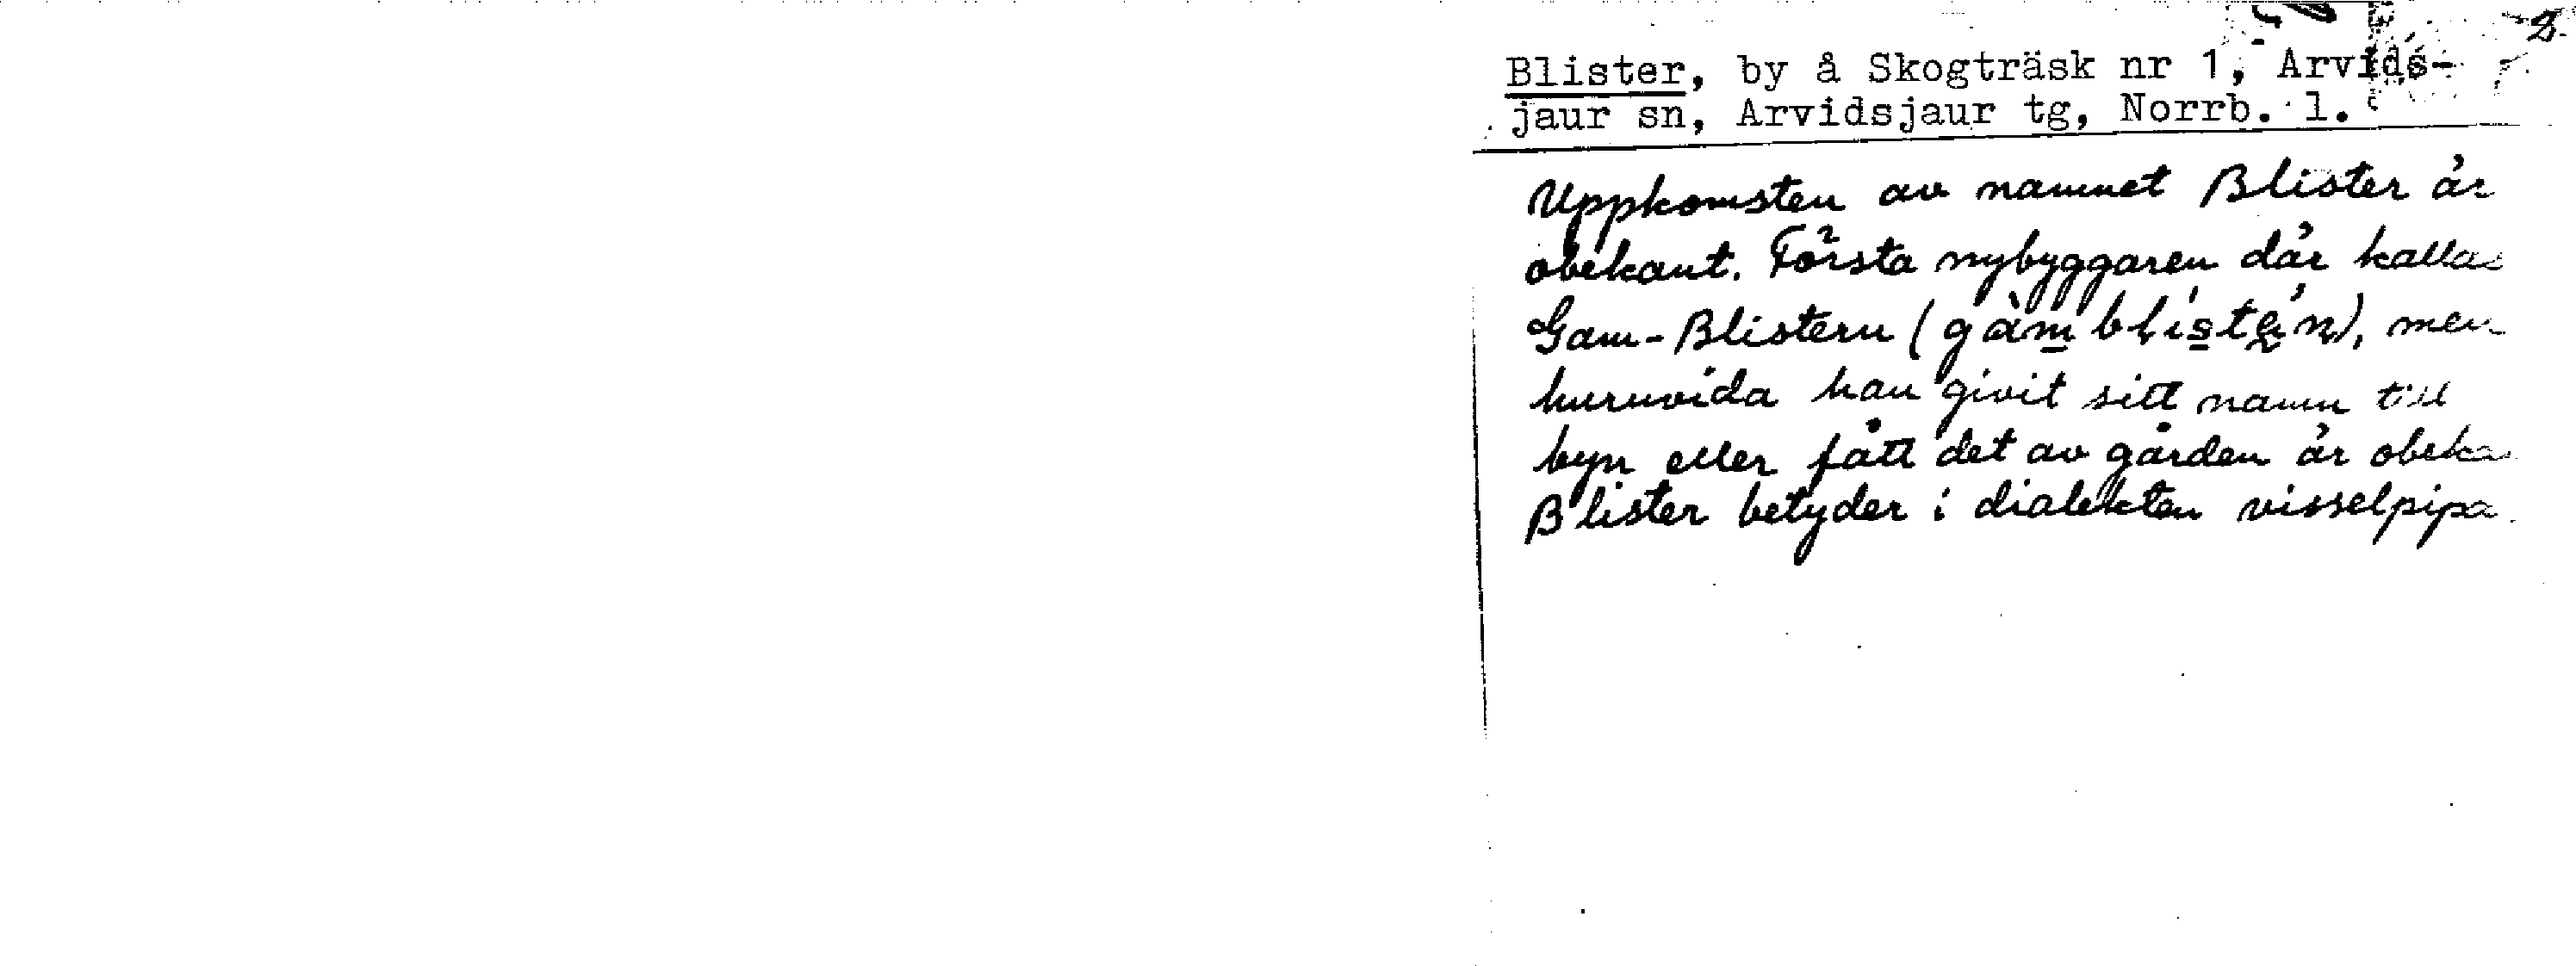 Blister, by å Skogträsk nr 1, Arvids-
jaur sn, Arvidsjaur tg, Norrb. l.
Uppkomsten av namnet Blister är
obekant. Första nybyggaren där kallas
Gam-Blistern (gàmblístę́n), men
huruvida han givit sitt namn till
byn eller fått det av gården är obeka
Blister betyder i dialekten visselpipa.